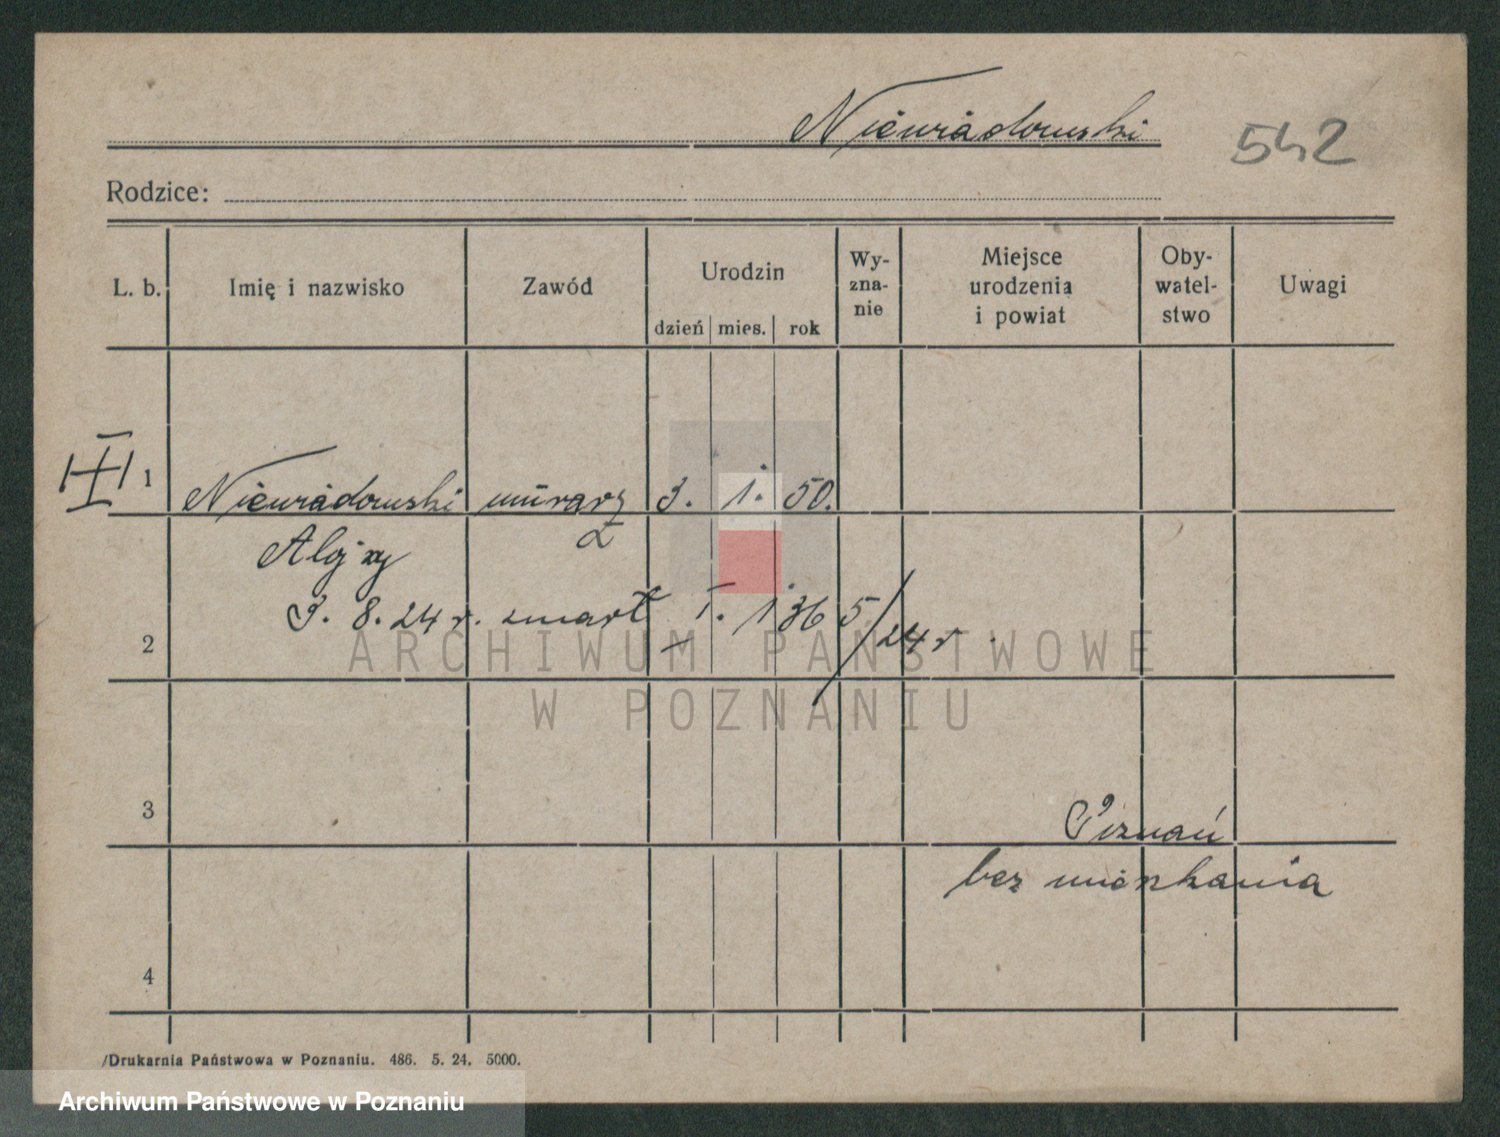 Niewiadowski
542
Rodzice:
L. b.
Imię i nazwisko
Zawód
Urodzin
dzień mies. rok
Wy-
zna-
nie
Miejsce
urodzenia
i powiat
Oby-
watel-
stwo
Uwagi
1 Niewiadowski murarz 3. 1. 50.
Alojzy
3. 8. 24 r. zmarł I. 1 36 5/24 r
2
ARCHIWUM PAŃSTWOWE
W POZNANIU
3
Poznań
bez mieszkania
4
/Drukarnia Państwowa w Poznaniu. 486. 5. 24. 5000.
Archiwum Państwowe w Poznaniu